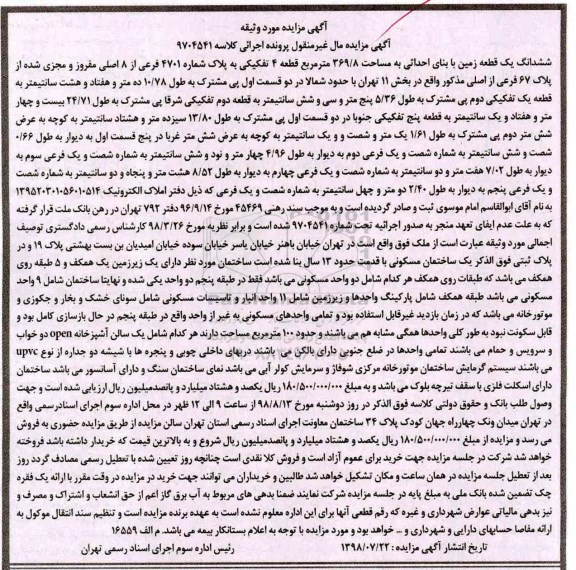 آگهی مزایده مورد وثیقه
آگهی مزایده مال غیرمنقول پرونده اجرائی کلاسه ۹۷۰۴۵۴۱
ششدانگ یک قطعه زمین با بنای احداثی به مساحت ۳۶۹/۸ مترمربع قطعه ۴ تفکیکی به پلاک شماره ۴۷۰۱ فرعی از ۸ اصلی مفروز و مجزی شده از
پلاک ۶۷ فرعی از اصلی مذکور واقع در بخش ۱۱ تهران با حدود شمالا در دو قسمت اول پی مشترک به طول ۱۰/۷۸ ده متر و هفتاد و هشت سانتیمتر به
قطعه یک تفکیکی دوم پی مشترک به طول ۵/۳۶ پنج متر و سی و شش سانتیمتر به قطعه دوم تفکیکی شرقا پی مشترک به طول ۲۴/۷۱ بیست و چهار
متر و هفتاد و یک سانتیمتر به قطعه پنج تفکیکی جنوبا در دو قسمت اول پی مشترک به طول ۱۳/۸۰ سیزده متر و هشتاد سانتیمتر به کوچه به عرض
شش متر دوم پی مشترک به طول ۱/۶۱ یک متر و شصت و و یک سانتیمتر به کوچه به عرض شش متر غربا در پنج قسمت اول به دیوار به طول ۰/۶۶
شصت و شش سانتیمتر به شماره شصت و یک فرعی دوم به دیوار به طول ۴/۹۶ چهار متر و نود و شش سانتیمتر به شماره شصت و یک فرعی سوم به
دیوار به طول ۷/۰۲ هفت متر و دو سانتیمتر به شماره شصت و یک فرعی چهارم به دیوار به طول ۸/۵۲ هشت متر و پنجاه و دو سانتیمتر به شماره شصت
و یک فرعی پنجم به دیوار به طول ۲/۴۰ دو متر و چهل سانتیمتر به شماره شصت و یک فرعی که ذیل دفتر املاک الکترونیک ۱۳۹۵۲۰۳۰۱۰۵۶۰۱۰۵۱۴
به نام آقای ابوالقاسم امام موسوی ثبت و صادر گردیده است و به موجب سند رهنی ۴۵۴۶۹ مورخ ۹۶/۹/۱۴ دفتر ۷۹۲ تهران در رهن بانک ملت قرار گرفته
که به علت عدم ایفای تعهد منجر به صدور اجرائیه تحت شماره ۹۷۰۴۵۴۱ شده است و برابر نظریه مورخ ۹۸/۳/۲۶ کارشناس رسمی دادگستری توصیف
اجمالی مورد وثیقه عبارت است از ملک فوق واقع است در تهران خیابان باهنر خیابان یاسر خیابان سوده خیابان امیدیان بن بست بهشتی پلاک ۱۹ و در
پلاک ثبتی فوق الذکر یک ساختمان مسکونی با قدمت حدود ۱۳ سال بنا شده است ساختمان مورد نظر دارای یک زیرزمین یک همکف و ۵ طبقه روی
همکف می باشد که طبقات روی همکف هر کدام شامل دو واحد مسکونی می باشد فقط در طبقه پنجم دو واحد یکی شده و نهایتا ساختمان شامل ۹ واحد
مسکونی می باشد طبقه همکف شامل پارکینگ واحدها و زیرزمین شامل ۱۱ واحد انبار و تاسیسات مسکونی شامل سونای خشک و بخار و جکوزی و
موتورخانه می باشد که در زمان بازدید غیرقابل استفاده بود و تمامی واحدهای مسکونی به غیر از واحد واقع در طبقه پنجم در حال بازسازی کامل بود و
قابل سکونت نبود به طور کلی واحدها همگی مشابه هم می باشند و حدود ۱۰۰ مترمربع مساحت دارند هر کدام شامل یک سالن آشپزخانه open دو خواب
و سرویس و حمام می باشند تمامی واحدها در ضلع جنوبی دارای بالکن می باشند دربهای داخلی چوبی و پنجره ها با شیشه دو جداره از نوع upvc
می باشند سیستم گرمایش ساختمان موتورخانه مرکزی شوفاژ و سرمایش کولر آبی می باشد نمای ساختمان سنگ و دارای آسانسور می باشد ساختمان
دارای اسکلت فلزی با سقف تیرچه بلوک می باشد و به مبلغ ۱۸۰/۵۰۰/۰۰۰/۰۰۰ ریال یکصد و هشتاد میلیارد و پانصدمیلیون ریال ارزیابی شده است و جهت
وصول طلب بانک و حقوق دولتی کلاسه فوق الذکر در روز دوشنبه مورخ ۹۸/۸/۱۳ از ساعت ۹ الی ۱۲ ظهر در محل اداره سوم اجرای اسنادرسمی واقع
در تهران میدان ونک چهارراه جهان کودک پلاک ۳۴ ساختمان معاونت اجرای اسناد رسمی استان تهران سالن مزایده از طریق مزایده حضوری به فروش
می رسد و مزایده از مبلغ ۱۸۰/۵۰۰/۰۰۰/۰۰۰ ریال یکصد و هشتاد میلیارد و پانصدمیلیون ریال شروع و به بالاترین قیمت که خریدار داشته باشد فروخته
خواهد شد شرکت در جلسه مزایده جهت خرید برای عموم آزاد است و فروش کلا نقدی است چنانچه روز تعیین شده با تعطیل رسمی مصادف گردد روز
بعد از تعطیل جلسه مزایده در همان ساعت و مکان تشکیل خواهد شد طالبین و خریداران می توانند جهت خرید در مزایده در وقت مقرر با ارائه یک فقره
چک تضمین شده بانک ملی به مبلغ پایه در جلسه مزایده شرکت نمایند ضمنا بدهی های مربوط به آب برق گاز اعم از حق انشعاب و اشتراک و مصرف و
نیز بدهی مالیاتی عوارض شهرداری و غیره که رقم قطعی آنها برای این اداره معلوم نشده است به عهده برنده مزایده است و تنظیم سند انتقال موکول به
ارائه مفاصا حسابهای دارایی و شهرداری و ... خواهد بود و مورد مزایده با توجه به اعلام بستانکار بیمه می باشد. م الف ۱۶۵۵۹
تاریخ انتشار آگهی مزایده : ۱۳۹۸/۰۷/۲۲ رئیس اداره سوم اجرای اسناد رسمی تهران